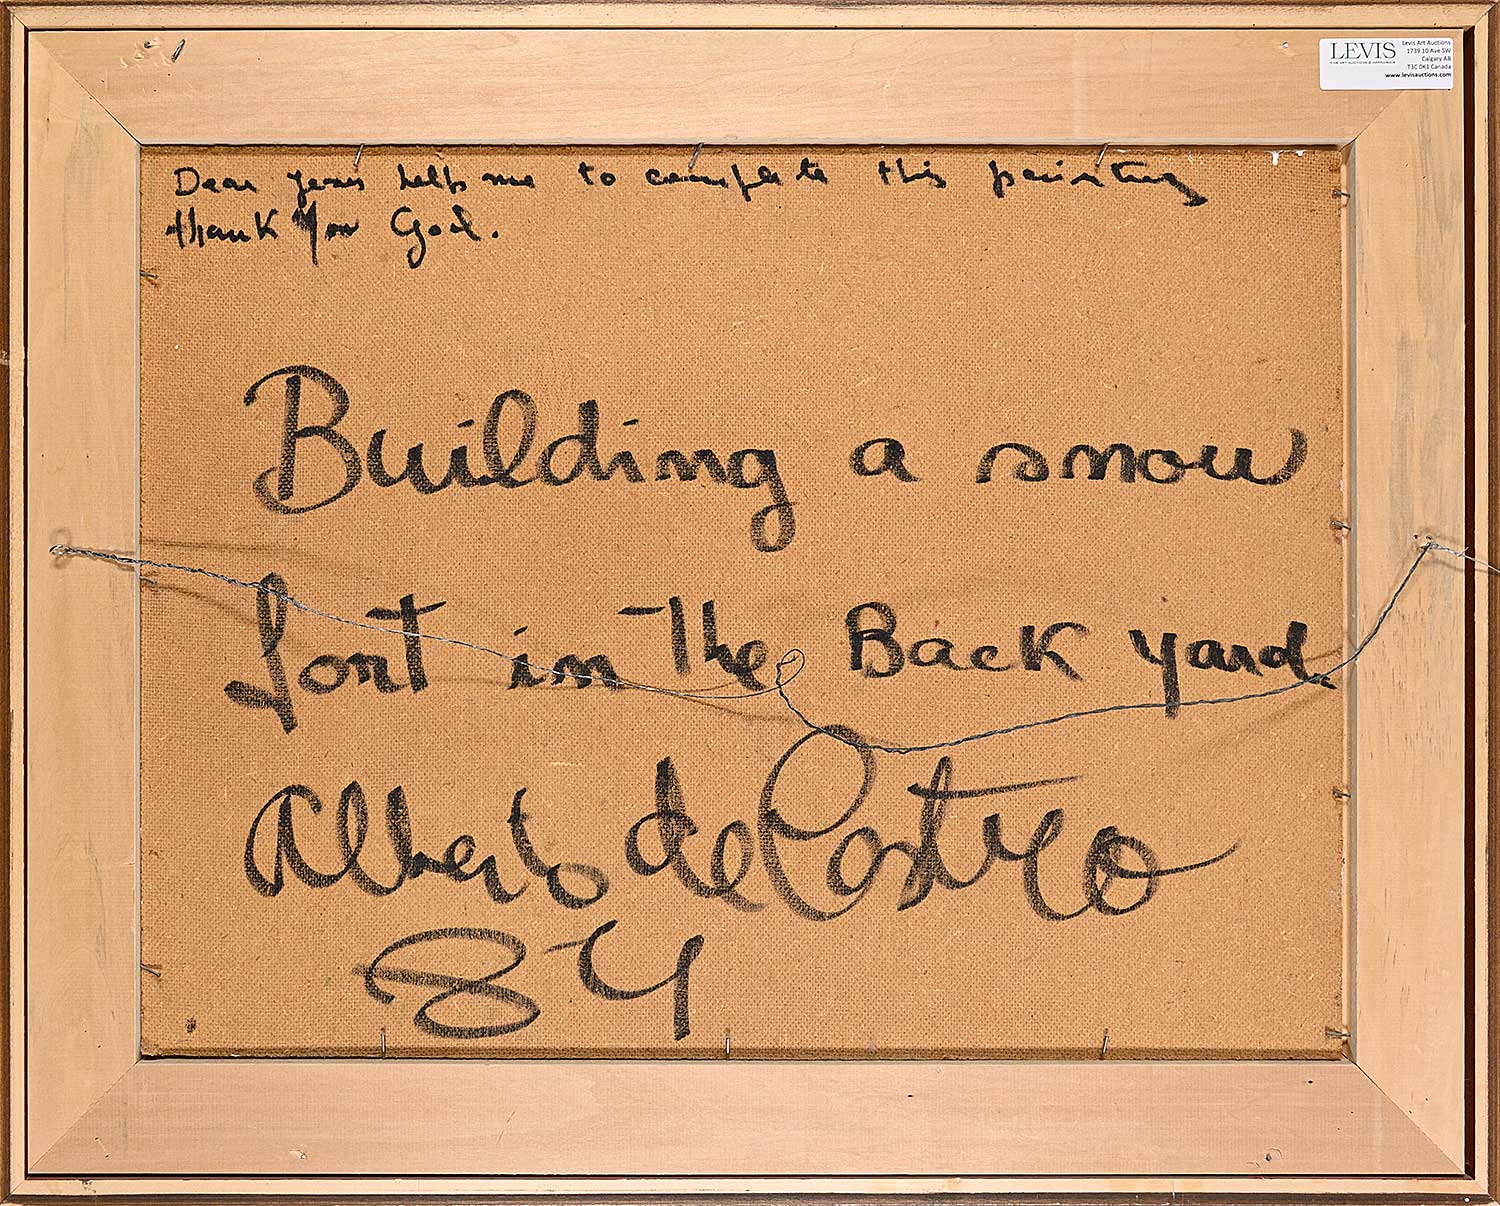 LEVIS
FINE ART AUCTIONS & APPRAISALS
Levis Art Auctions
1739 10 Ave SW
Calgary AB
T3C 0K1 Canada
www.levisauctions.com
Dear Jesus help me to complete this painting
thank You God.
Building a snow
fort in The Back yard
Alberto de Castro
84